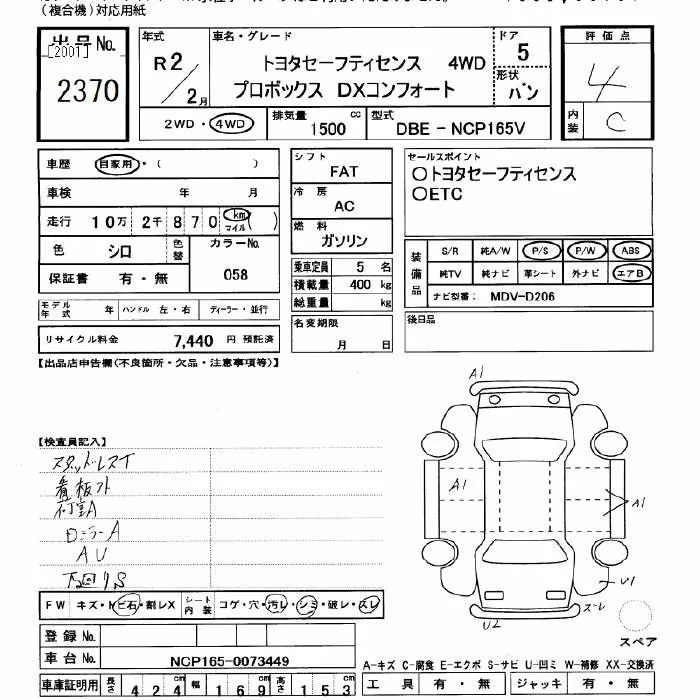 （複合機）対応用紙
出品No. [200T] 2370
年式 R2／2月
車名・グレード トヨタセーフティセンス 4WD
プロボックス DXコンフォート
ドア 5
形状 バン
評価点 4
内装 C
2WD・4WD 排気量 1500 cc 型式 DBE－NCP165V
車歴 自家用・（ ）
車検 年 月
走行 10万 2千 8 7 0 km マイル（ ）
色 シロ 色替 カラーNo. 058
保証書 有・無
モデル年式 年 ハンドル 左・右 ディーラー・並行
リサイクル料金 7,440 円 預託済
シフト FAT
冷房 AC
燃料 ガソリン
乗車定員 5 名
積載量 400 kg
総重量 kg
名変期限 月 日
セールスポイント
○トヨタセーフティセンス
○ETC
装備品 S/R 純A/W P/S P/W ABS
純TV 純ナビ 革シート 外ナビ エアB
ナビ型番： MDV-D206
後日品
【出品店申告欄(不良箇所・欠品・注意事項等)】
【検査員記入】
スタッドレスT
看板アト
A
ローラーA
AU
S
FW キズ・トビ石・割レX シート内装 コゲ・穴・汚レ・シミ・破レ・スレ
登録No.
車台No. NCP165-0073449
車庫証明用 長さ 424 cm 幅 169 cm 高さ 153 cm
A1
A1
A1
U1
スーレ
U2
スペア
A-キズ C-腐食 E-エクボ S-サビ U-凹ミ W-補修 XX-交換済
工具 有・無 ジャッキ 有・無